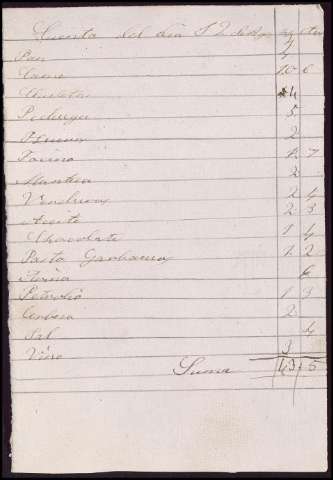 Cuenta del día 12 de Ago
Pan 7
Carne 10 6
Chuleta 4
Pechuga 5
Huevos 2
Tocino 2 7
Manteca 2
Verduras 2 4
Aceite 2 3
Chocolate 1 4
Pasta Garbanzos 1 2
Harina 6
Petroleo 1 3
Cerveza 2
Sal 4
Vino 3
Suma 43 5